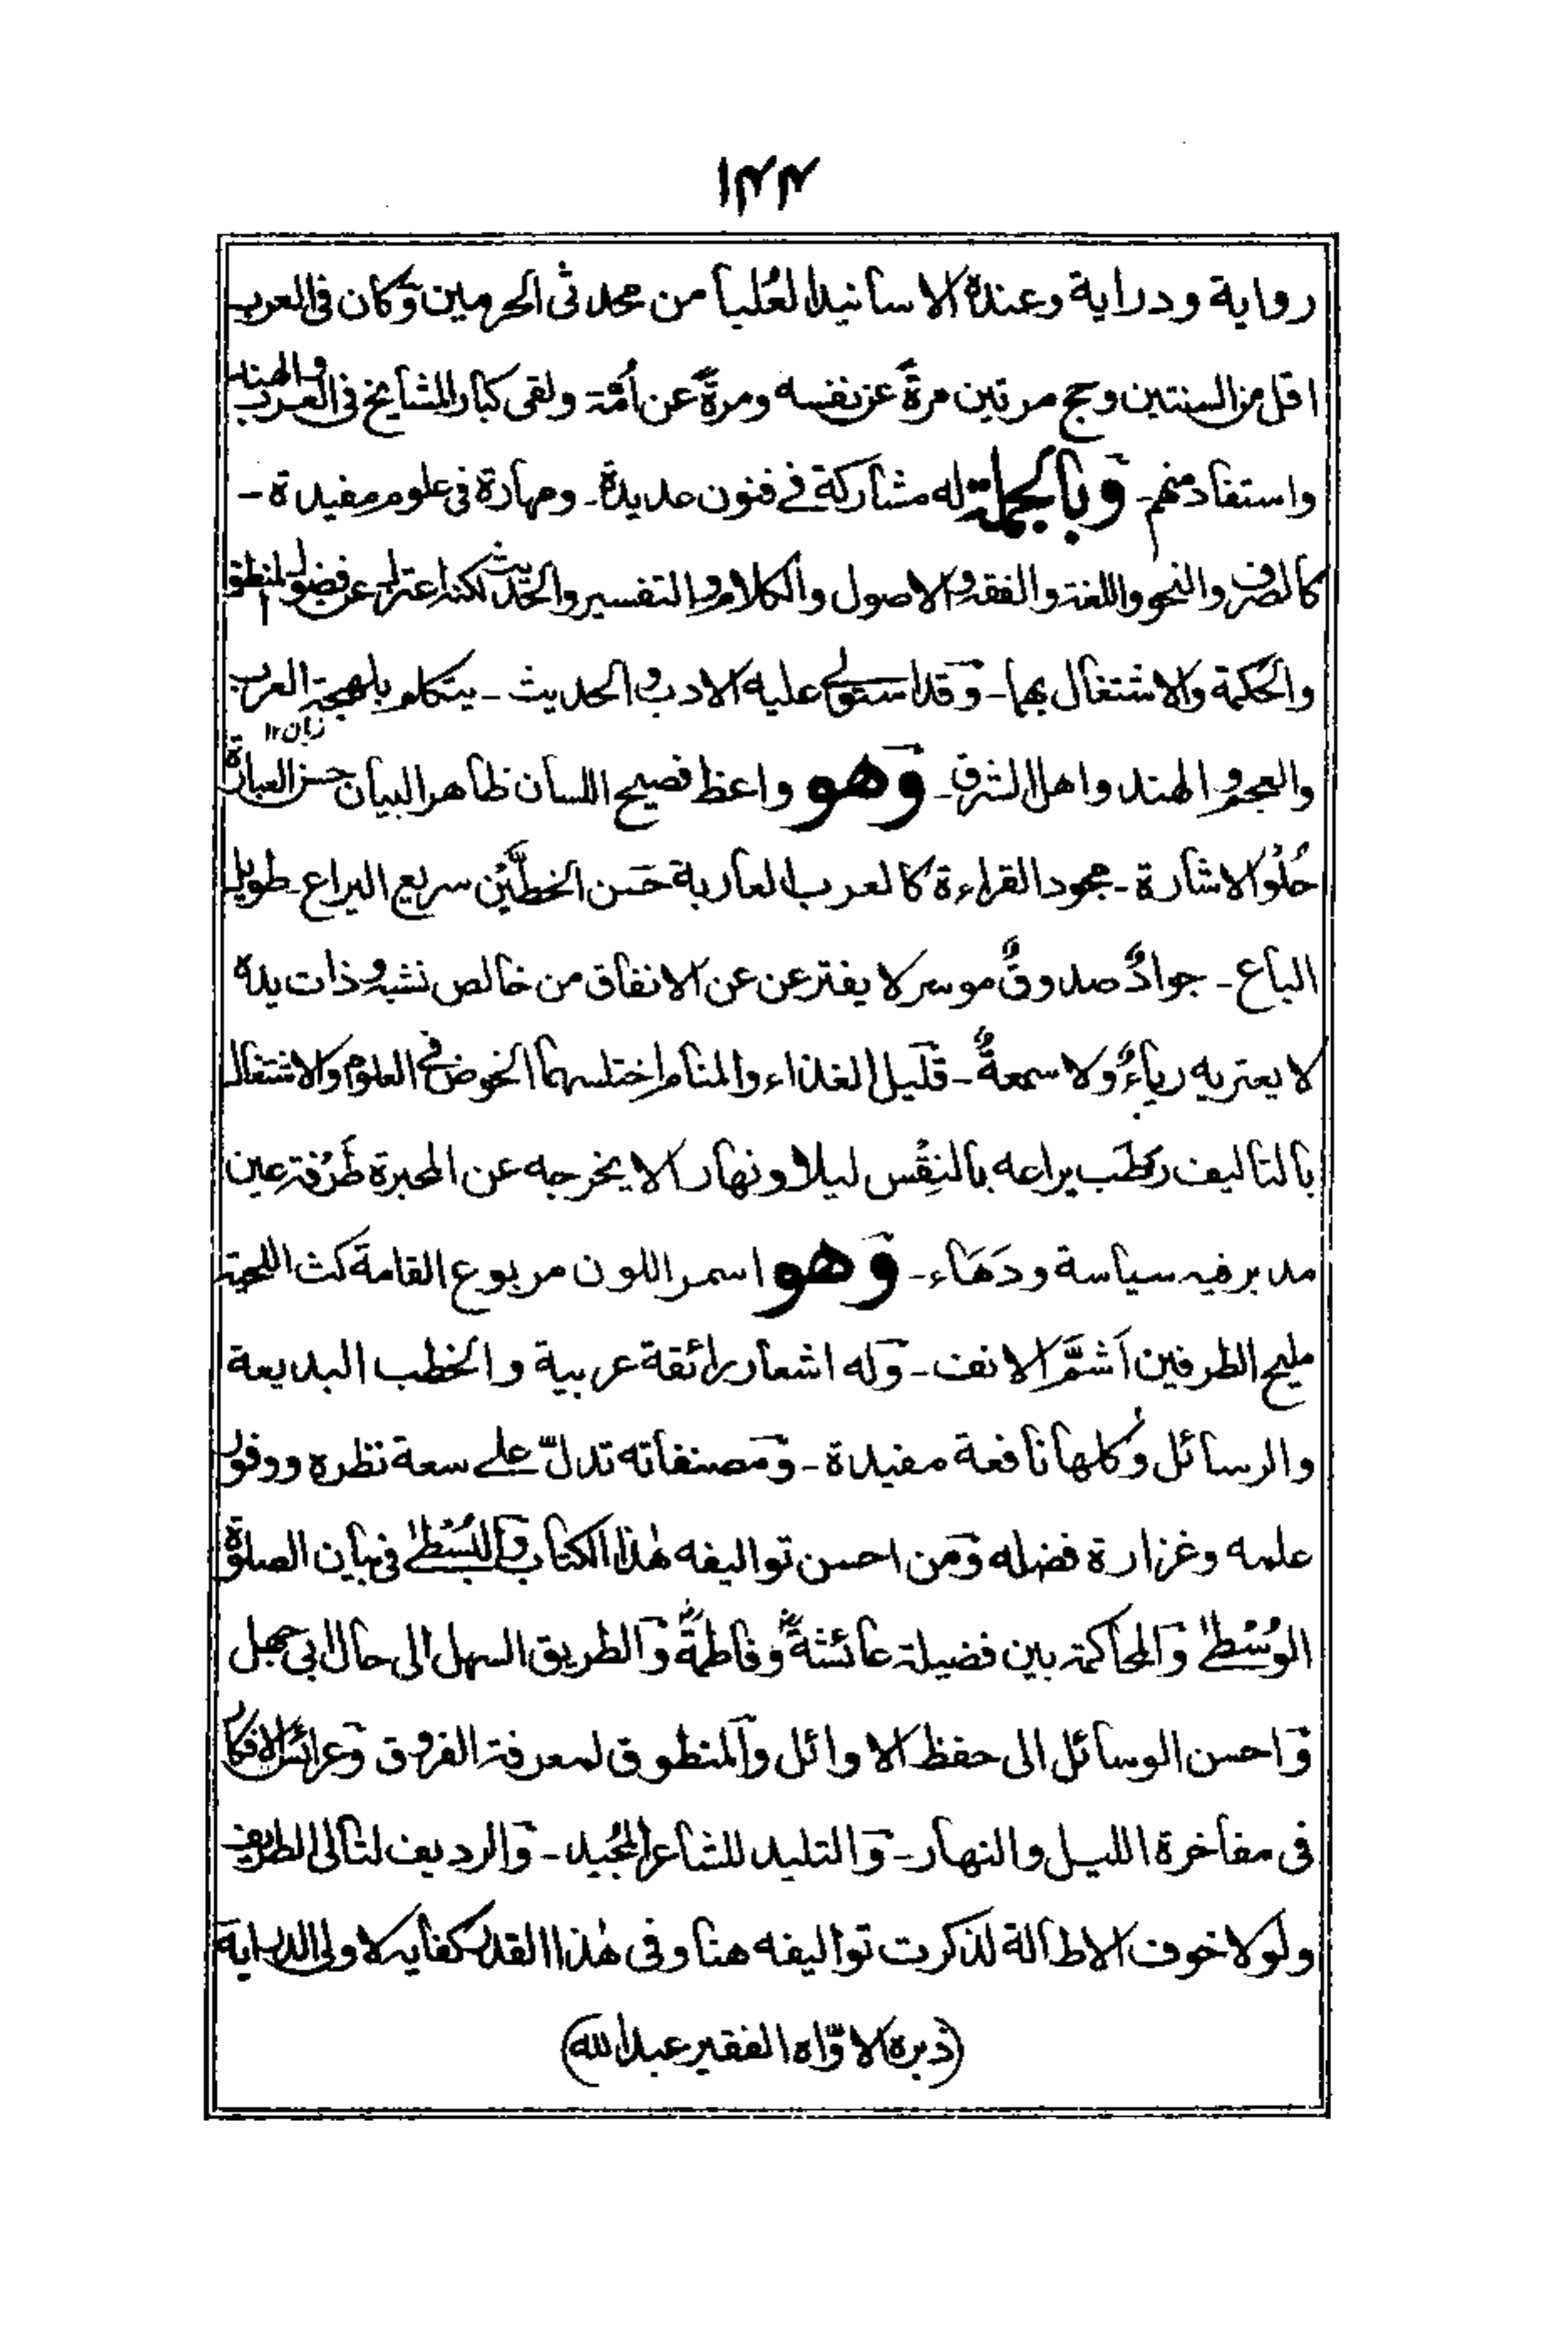 ۱۴۴
رواية ودراية وعنده الاسانيد العُليا من محدثى الحرمين وكان فى العرب
اقل من السنتين وحج مرتين مرةً عن نفسه ومرةً عن اُمّه ولقى كبار المشايخ فى العرب والهند
واستفاد منهم - وبالجملة له مشاركة فے فنون عديدة - ومهارة فى علوم مفيدة -
كالصرف والنحو واللغة والفقه والاصول والكلام والتفسير والحديث لكنه اعتزل عن فضول المنطق
والحكمة والاشتغال بهما - وقد استولے عليه الادب والحديث - يتكلم بلهجة العرب
زبان ۱۲
والعجم والهند واهل الشرق - وهو واعظ فصيح اللسان ظاهر البيان حسن العبارة
حُلْو الاشارة - مجود القراءة كالعرب العاربة حَسن الخطَّيْن سريع اليراع - طويل
الباع - جوادٌ صدوقٌ موسر لا يفتر عن عن الانفاق من خالص نشبه وذات يده
لا يعتريه رياءٌ ولا سمعةٌ - قليل الغذاء والمنام اختلسهما الخوض فے العلوم والاشتغال
بالتاليف رطَب يراعه بالنِقْس ليلا ونهارا لا يخرجه عن المحبرة طَرْفة عين
مدبر فيه سياسة ودَهَاء - وهو اسمر اللون مربوع القامة كث اللحية
مليح الطرفين اَشمَّ الانف - وله اشعار رائقة عربية والخطب البديعة
والرسائل وكلها نافعة مفيدة - ومصنفاته تدلّ علے سعة نظره ووفور
علمه وغزارة فضله ومن احسن تواليفه هٰذا الكتاب والبُسْطےٰ فى بيان الصلوٰة
الوُسْطےٰ والمحاكمة بين فضيلة عائشةؓ وفاطمةؓ والطريق السهل الى حال ابى جهل
واحسن الوسائل الى حفظ الاوائل والمنطوق لمعرفة الفروق وعرائس الافكار
فى مفاخرة الليل والنهار - والتليد للشاعر المُجيد - والرديف لتالى الطريف
ولولا خوف الاطالة لذكرت تواليفه هنا وفى هٰذا القدر كفاية لاولى الدراية
(ذبره الاوّاه الفقير عبد الله)